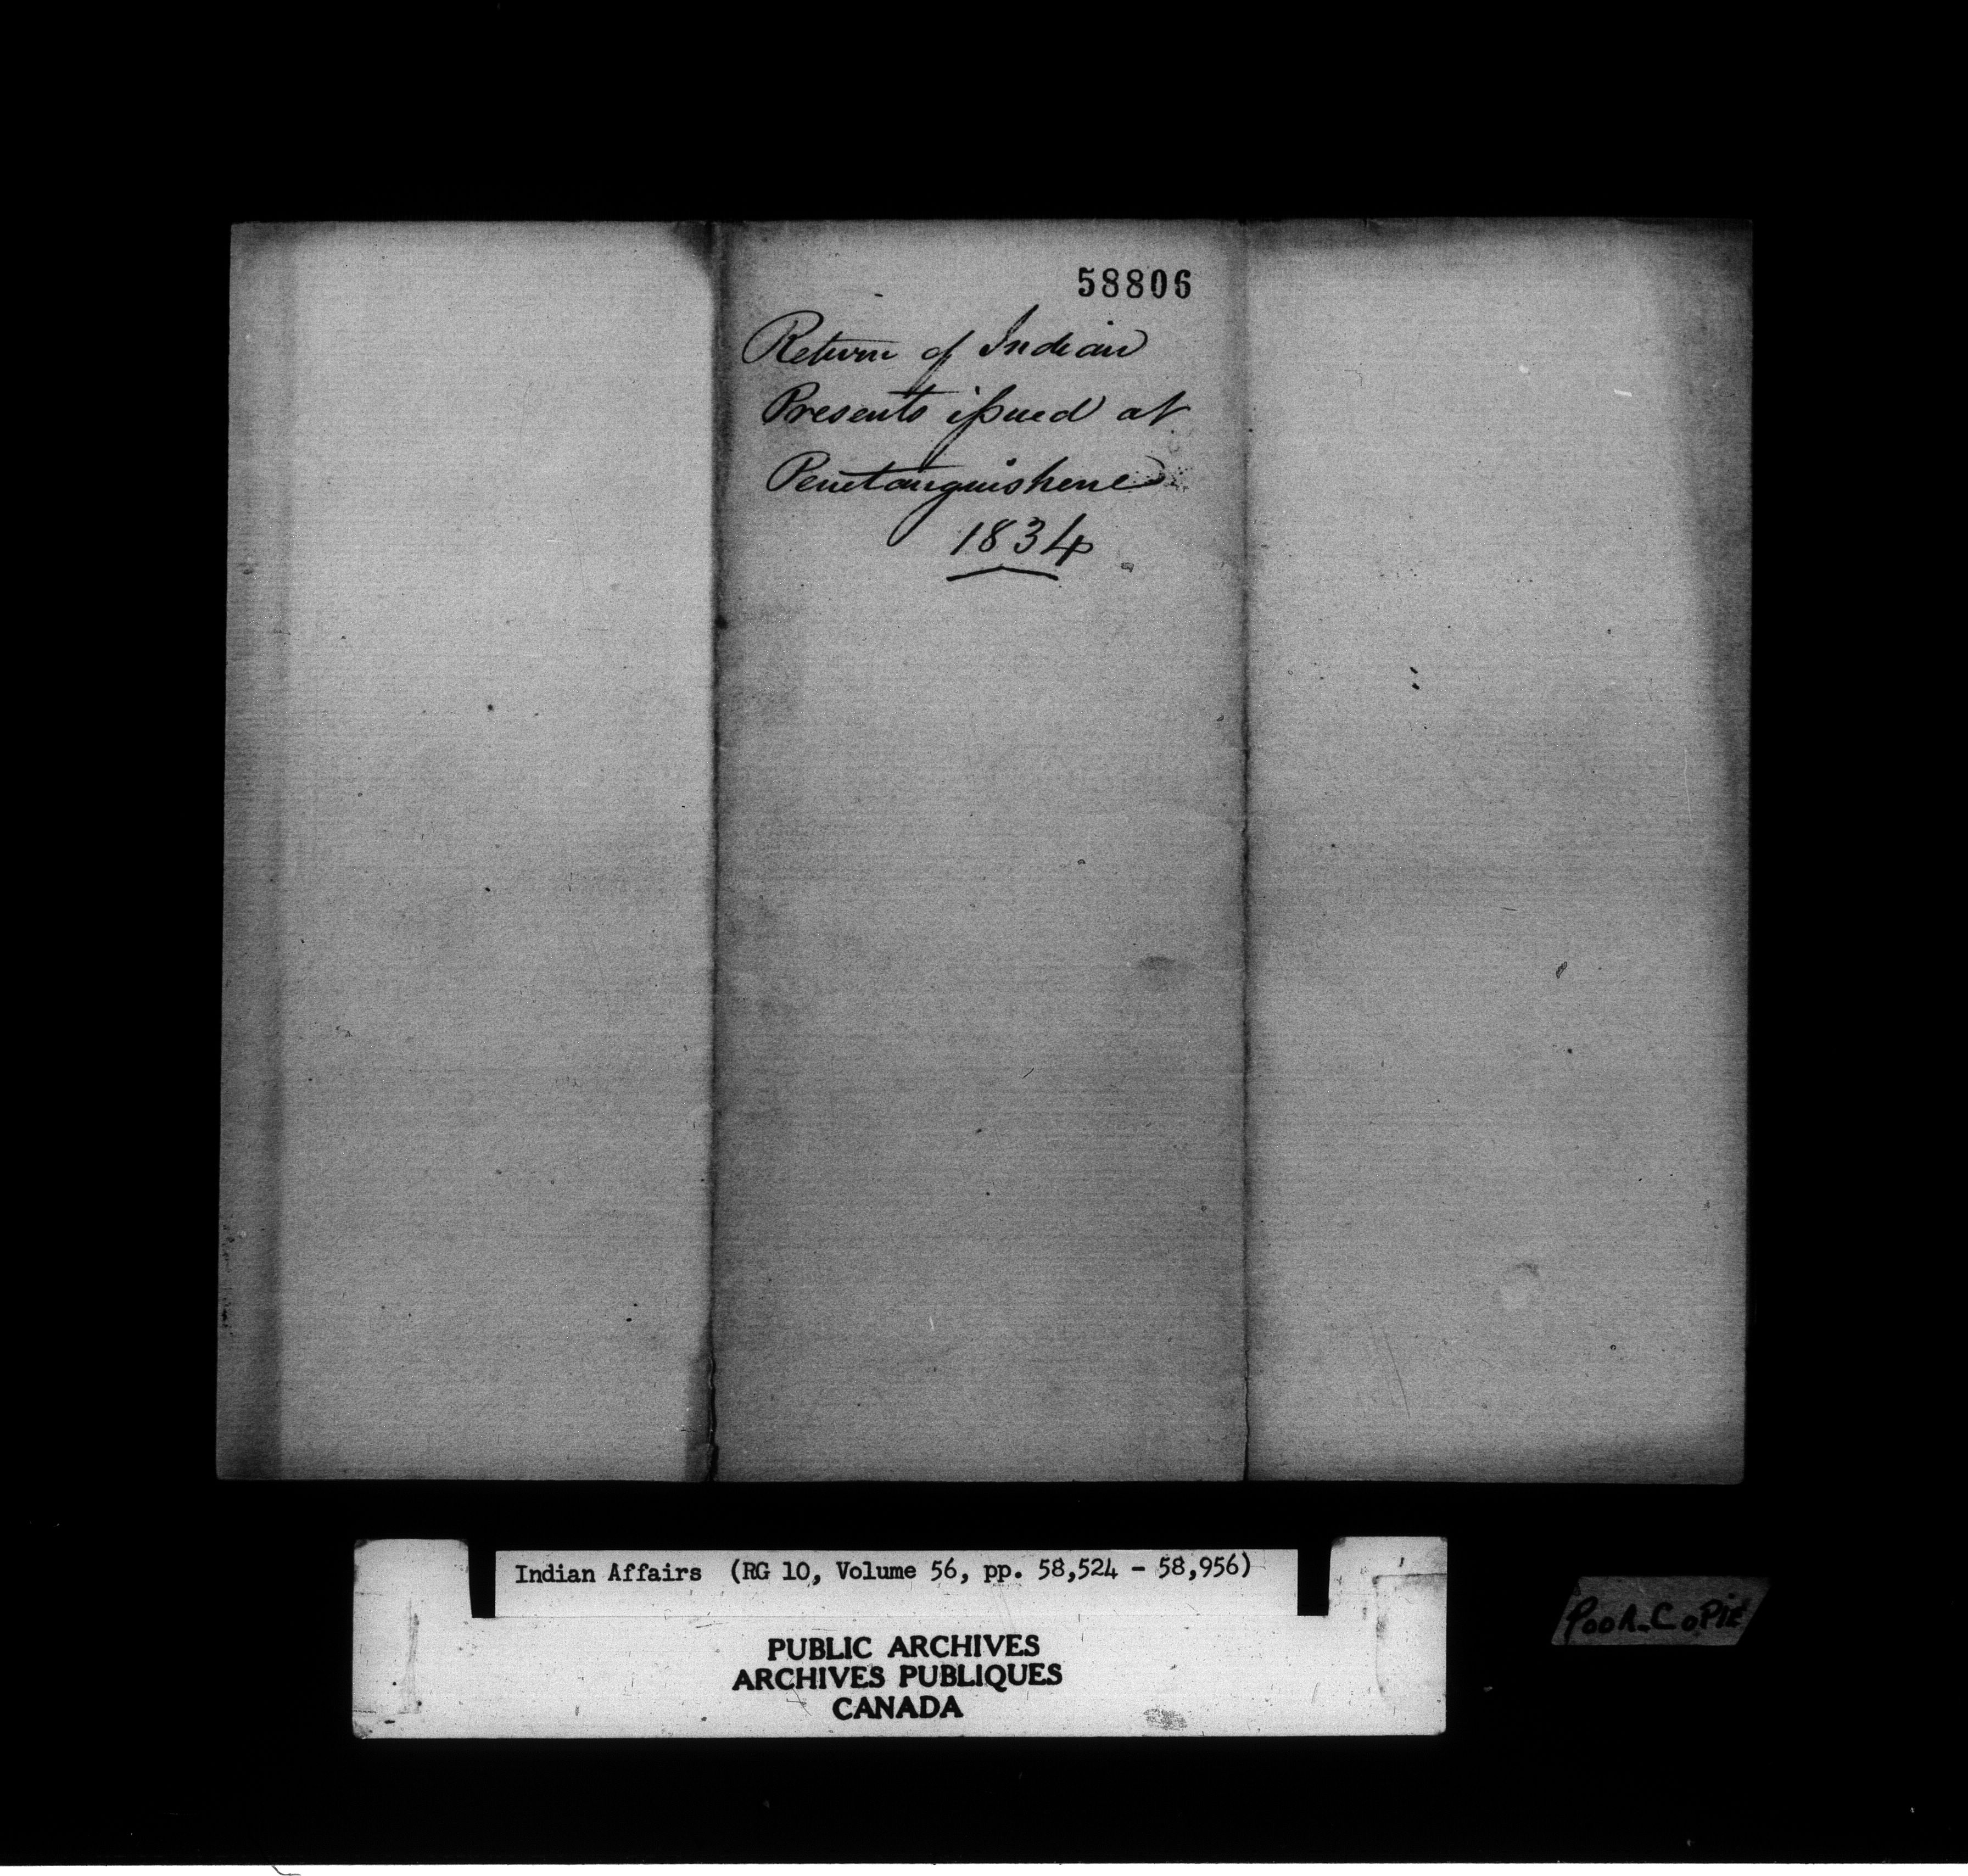 58806
Return of Indian
Presents issued at
Penetanguishene
1834
Indian Affairs (RG 10, Volume 56, pp. 58,524 - 58,956)
PUBLIC ARCHIVES
ARCHIVES PUBLIQUES
CANADA
POOR COPIE